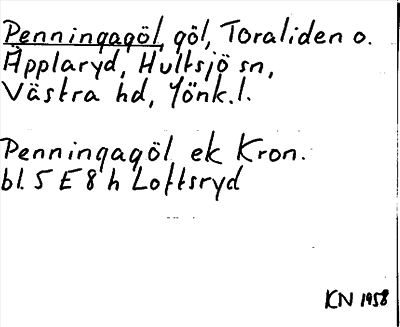 Penningagöl, göl, Toraliden o.
Äpplaryd, Hultsjö sn,
Västra hd, Jönk.l.
Penningagöl ek Kron.
bl. 5 E 8 h Loftsryd
KN 1958